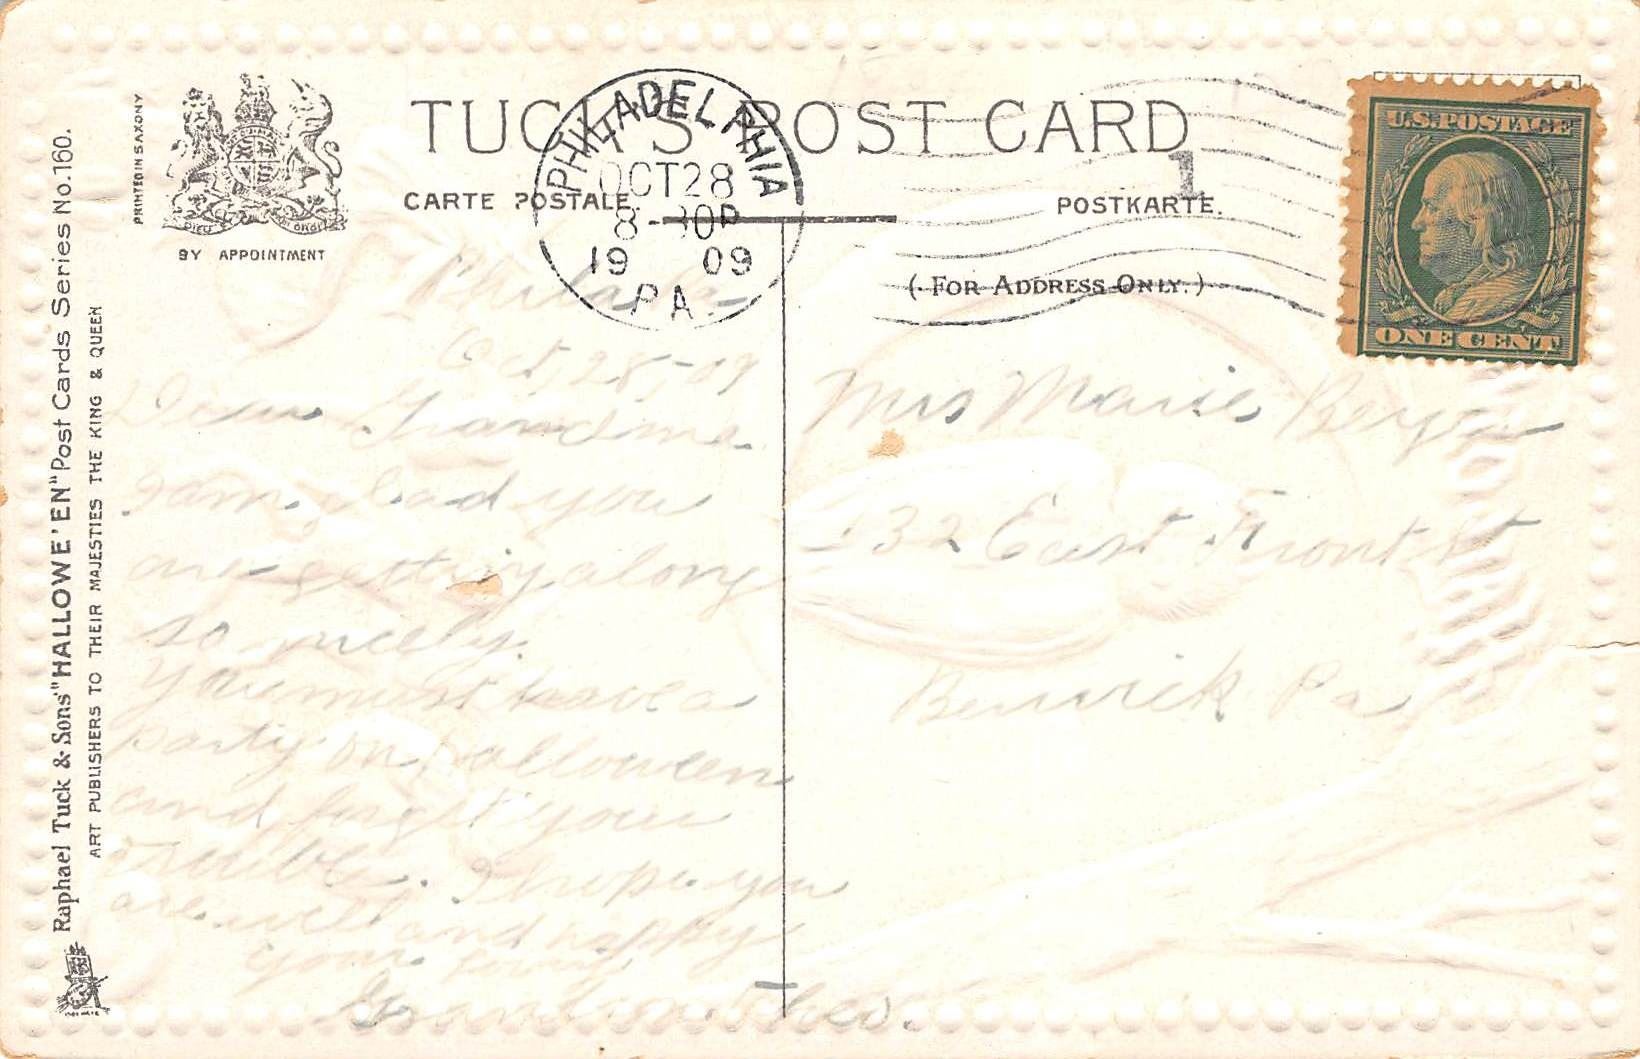 TUCK'S POST CARD
CARTE POSTALE
POSTKARTE.
(FOR ADDRESS ONLY.)
PRINTED IN SAXONY
BY APPOINTMENT
Raphael Tuck & Sons' "HALLOWE'EN" Post Cards Series No. 160.
ART PUBLISHERS TO THEIR MAJESTIES THE KING & QUEEN
PHILADELPHIA
OCT 28
8-30P
1909
PA.
1
U.S. POSTAGE
ONE CENT
Phila Pa
Oct, 28, -09
Dear Grandma.
I am glad you
are getting along
so nicely.
You must have a
party on Halloween
and forget your
trouble. I hope you
are well and happy
Your loving
Grandson
Mrs Marie
132 East Front St
Berwick Pa